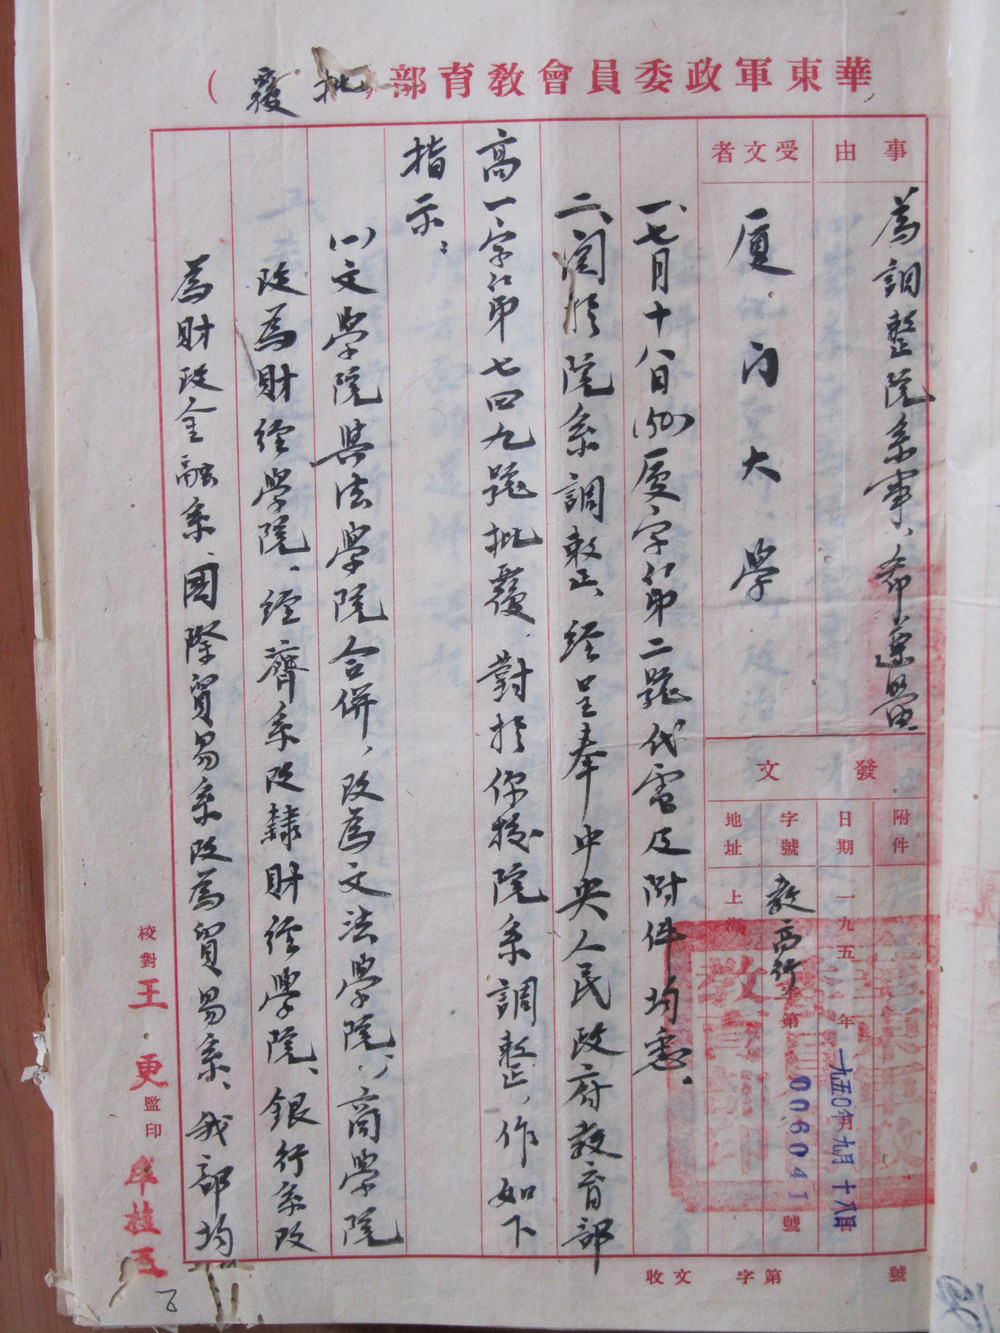 華東軍政委員會教育部（批覆）
事由
為調整院系事、希遵照
受文者
厦门大學
發文
附件
日期
一九五 年
一九五〇年九月十八日
字號
教高行字第006041號
地址
上海
一、七月十八日(39)厦字第二號代電及附件均悉。
二、関於院系調整、經呈奉中央人民政府教育部
高一字第七四九號批覆、對於你校院系調整、作如下
指示：
(一)文學院與法學院合併，改為文法學院，商學院
改為財經學院。經濟系改隸財經學院、銀行系改
為財政金融系、國際貿易系改為貿易系、我部均
校對
王 更
監印
收文 字第 號